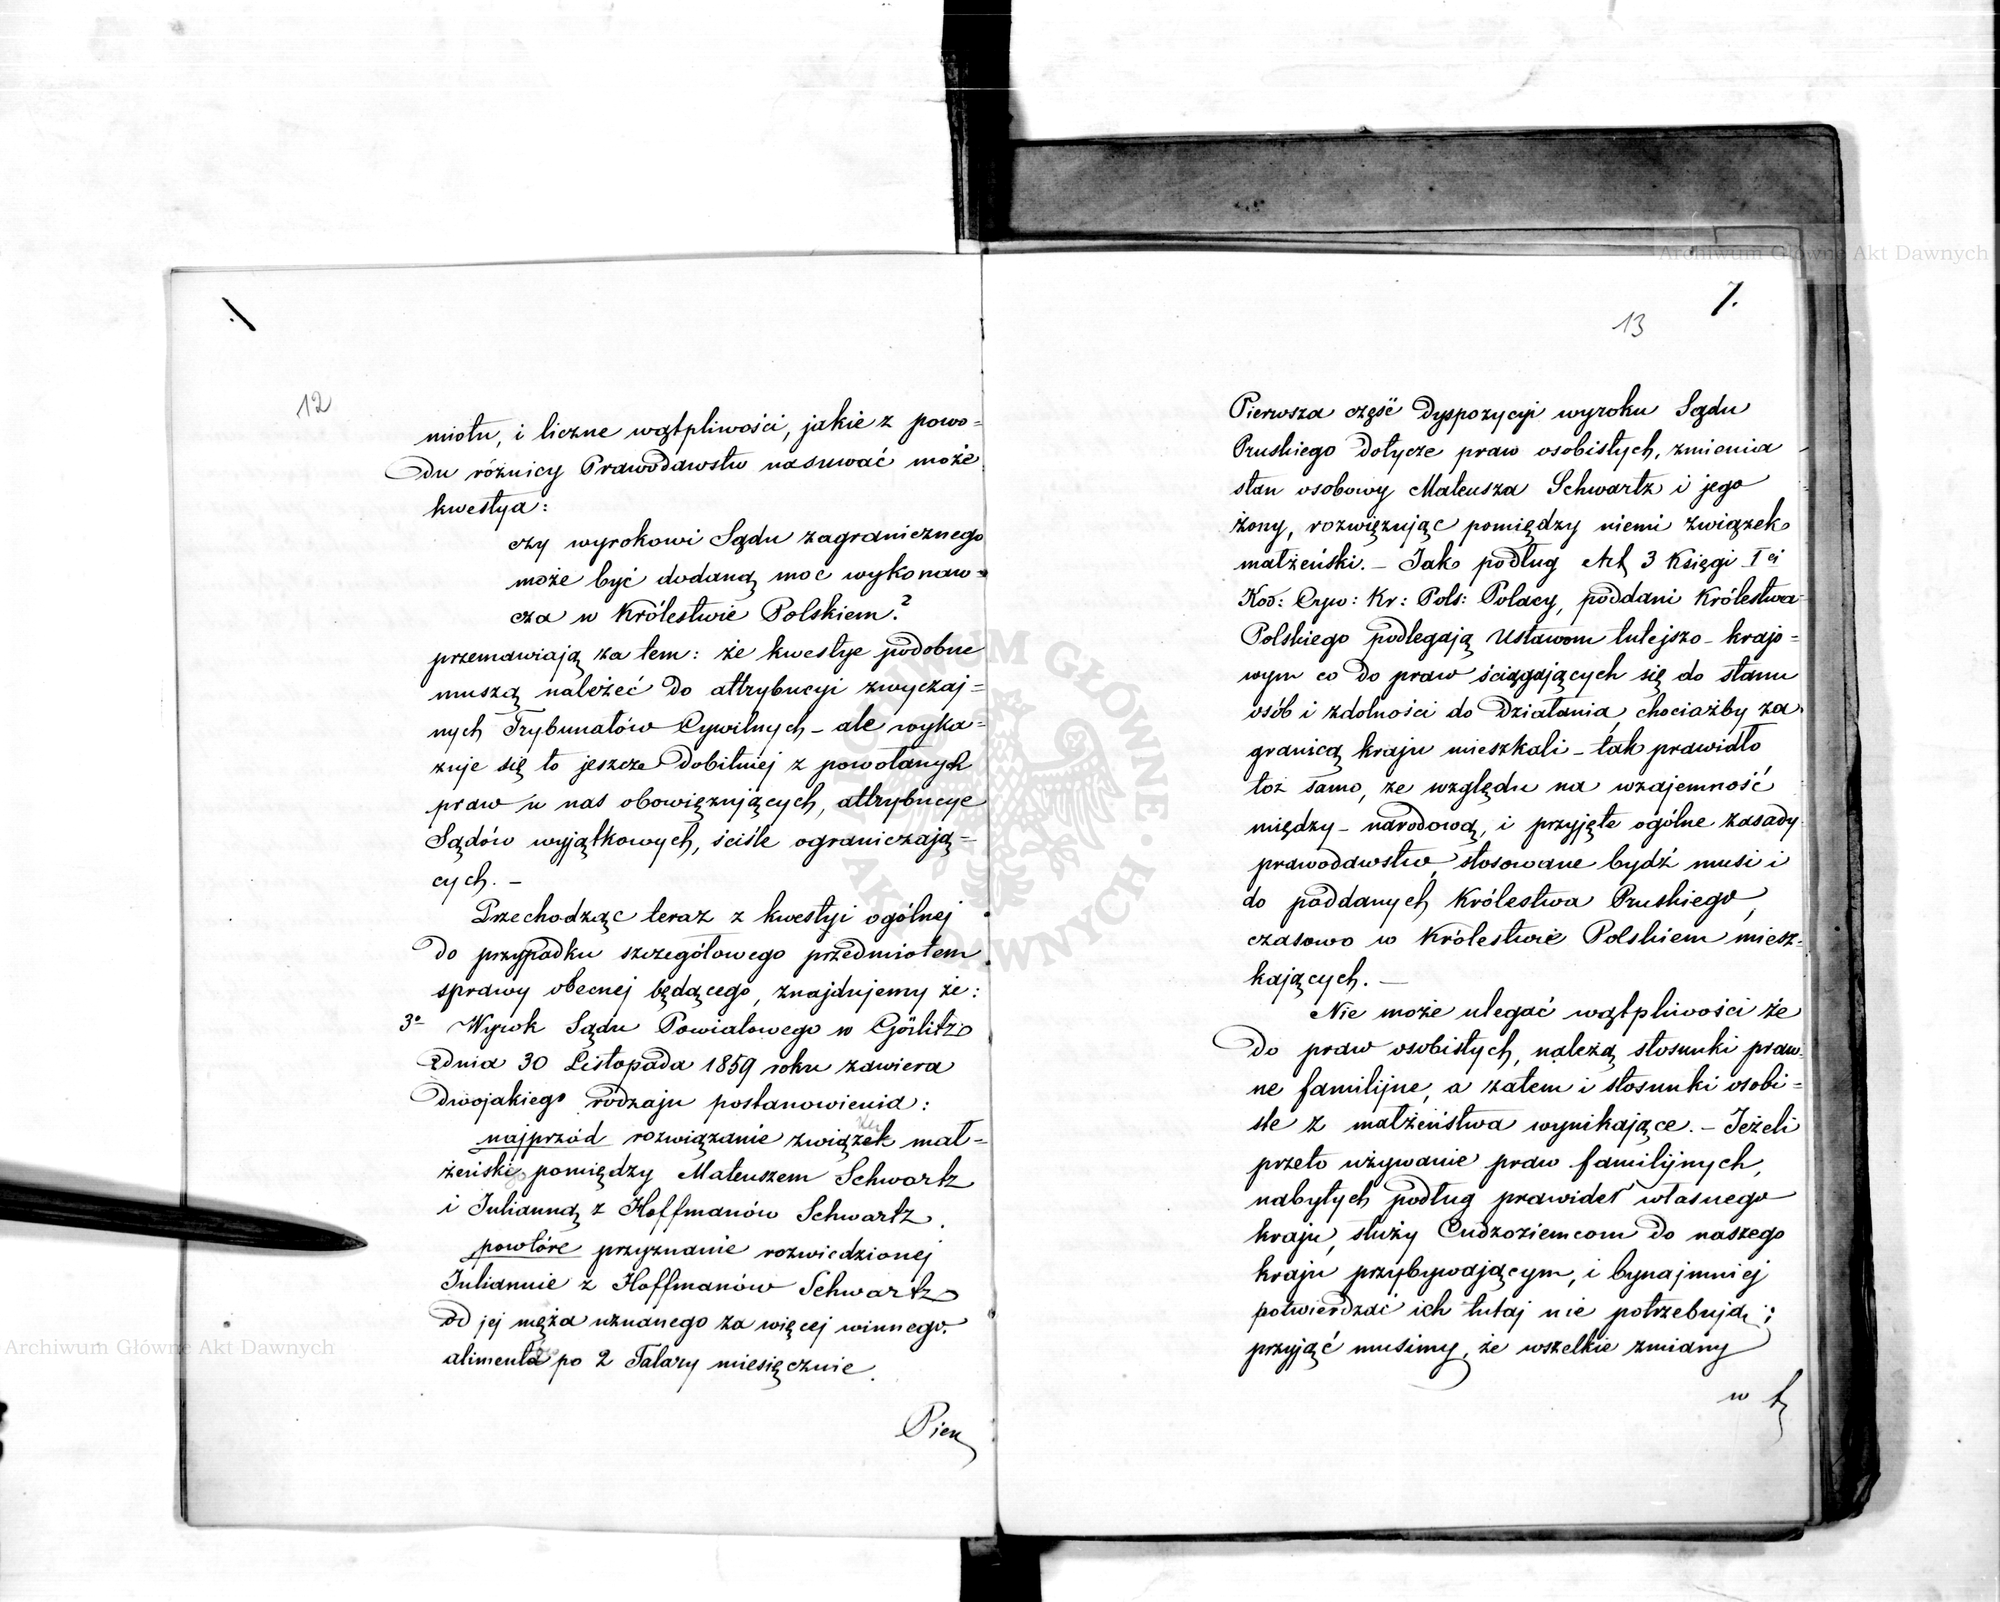 12
miotu, i liczne wątpliwości, jakie z powo=
du różnicy Prawodawstw nasuwać może
kwestya:
czy wyrokowi Sądu zagranicznego
może być dodaną moc wykonaw=
cza w Królestwie Polskiem?
przemawiają za tem: że kwestye podobne
muszą należeć do attrybucyi zwyczaj=
nych Trybunałów Cywilnych – ale wyka=
zuje się to jeszcze dobitniej z powołanych
praw u nas obowięzujących, attrybucye
Sądów wyjątkowych, ściśle ograniczają=
cych. –
Przechodząc teraz z kwestyi ogólnej
do przypadku szczegółowego przedmiotem
sprawy obecnej będącego, znajdujemy że:
3o Wyrok Sądu Powiatowego w Görlitz
dnia 30 Listopada 1859 roku zawiera
dwojakiego rodzaju postanowienia:
najprzód rozwiązanie związek mał=
żeński pomiędzy Mateuszem Schwartz
i Julianną z Hoffmanów Schwartz.
powtóre przyznanie rozwiedzionej
Juliannie z Hoffmanów Schwartz
od jej męża uznanego za więcej winnego.
alimenta po 2 Talary miesięcznie.
Pier
7.
13
Pierwsza część dyspozycyi wyroku Sądu
Pruskiego dotycze praw osobistych, zmienia
stan osobowy Mateusza Schwartz i jego
żony, rozwięzując pomiędzy niemi związek
małżeński. – Jak podług Art 3 Księgi I ej
Kod: Cyw: Kr: Pols: Polacy, poddani Królestwa
Polskiego podlegają Ustawom tutejszo-krajo=
wym co do praw ściągających się do stanu
osób i zdolności do działania, chociażby za
granicą kraju mieszkali – tak prawidło
toż samo, ze względu na wzajemność
między-narodową, i przyjęte ogólne zasady
prawodawstw, stosowane bydź musi i
do poddanych Królestwa Pruskiego,
czasowo w Królestwie Polskiem miesz=
kających. –
Nie może ulegać wątpliwości że
do praw osobistych, należą stosunki praw=
ne familijne, a zatem i stosunki osobi=
ste z małżeństwa wynikające. – Jeżeli
przeto używanie praw familijnych,
nabytych podług prawideł własnego
kraju, służy Cudzoziemcom do naszego
kraju przybywającym, i bynajmniej
potwierdzać ich tutaj nie potrzebują;
przyjąć musimy, że wszelkie zmiany
w t
Archiwum Główne Akt Dawnych
Archiwum Główne Akt Dawnych
ARCHIWUM GŁÓWNE AKT DAWNYCH